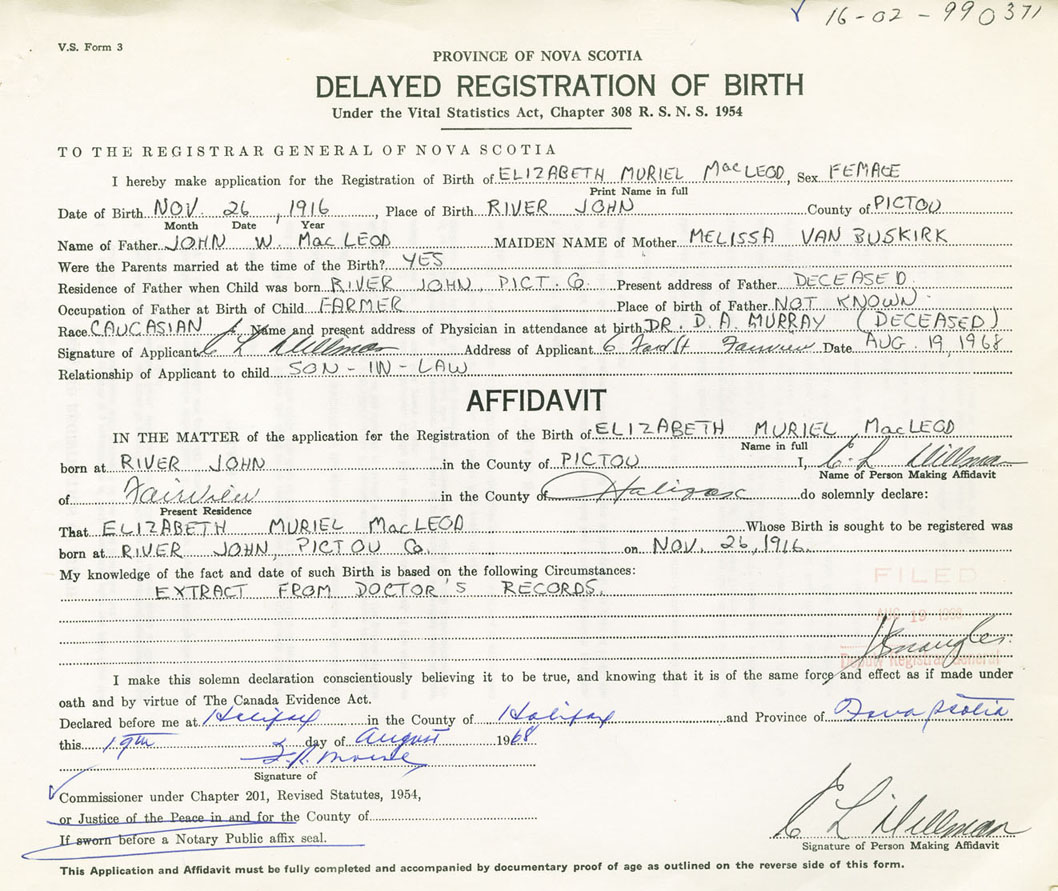 16-02-990371
V.S. Form 3
PROVINCE OF NOVA SCOTIA
DELAYED REGISTRATION OF BIRTH
Under the Vital Statistics Act, Chapter 308 R. S. N. S. 1954
TO THE REGISTRAR GENERAL OF NOVA SCOTIA
I hereby make application for the Registration of Birth of ELIZABETH MURIEL MacLEOD, Sex FEMALE
Print Name in full
Date of Birth NOV. 26, 1916, Place of Birth RIVER JOHN County of PICTOU
Month Date Year
Name of Father JOHN W. MacLEOD MAIDEN NAME of Mother MELISSA VAN BUSKIRK
Were the Parents married at the time of the Birth? YES
Residence of Father when Child was born RIVER JOHN, PICT. Co. Present address of Father DECEASED.
Occupation of Father at Birth of Child FARMER Place of birth of Father NOT KNOWN
Race CAUCASIAN Name and present address of Physician in attendance at birth DR. D. A. MURRAY (DECEASED)
Signature of Applicant C L Millman Address of Applicant 6 Fairview Date AUG. 19, 1968
Relationship of Applicant to child SON-IN-LAW
AFFIDAVIT
IN THE MATTER of the application for the Registration of the Birth of ELIZABETH MURIEL MacLEOD
Name in full
born at RIVER JOHN in the County of PICTOU I, C. L Millman
Name of Person Making Affidavit
of Fairview in the County of Halifax do solemnly declare:
Present Residence
That ELIZABETH MURIEL MacLEOD Whose Birth is sought to be registered was
born at RIVER JOHN, PICTOU Co. on NOV. 26, 1916.
My knowledge of the fact and date of such Birth is based on the following Circumstances:
EXTRACT FROM DOCTOR'S RECORDS.
FILED
AUG 19 1968
Deputy Registrar General
I make this solemn declaration conscientiously believing it to be true, and knowing that it is of the same force and effect as if made under
oath and by virtue of The Canada Evidence Act.
Declared before me at Halifax in the County of Halifax and Province of Nova Scotia
this 19th day of August 1968
Signature of
Commissioner under Chapter 201, Revised Statutes, 1954,
or Justice of the Peace in and for the County of
If sworn before a Notary Public affix seal.
C L Millman
Signature of Person Making Affidavit
This Application and Affidavit must be fully completed and accompanied by documentary proof of age as outlined on the reverse side of this form.